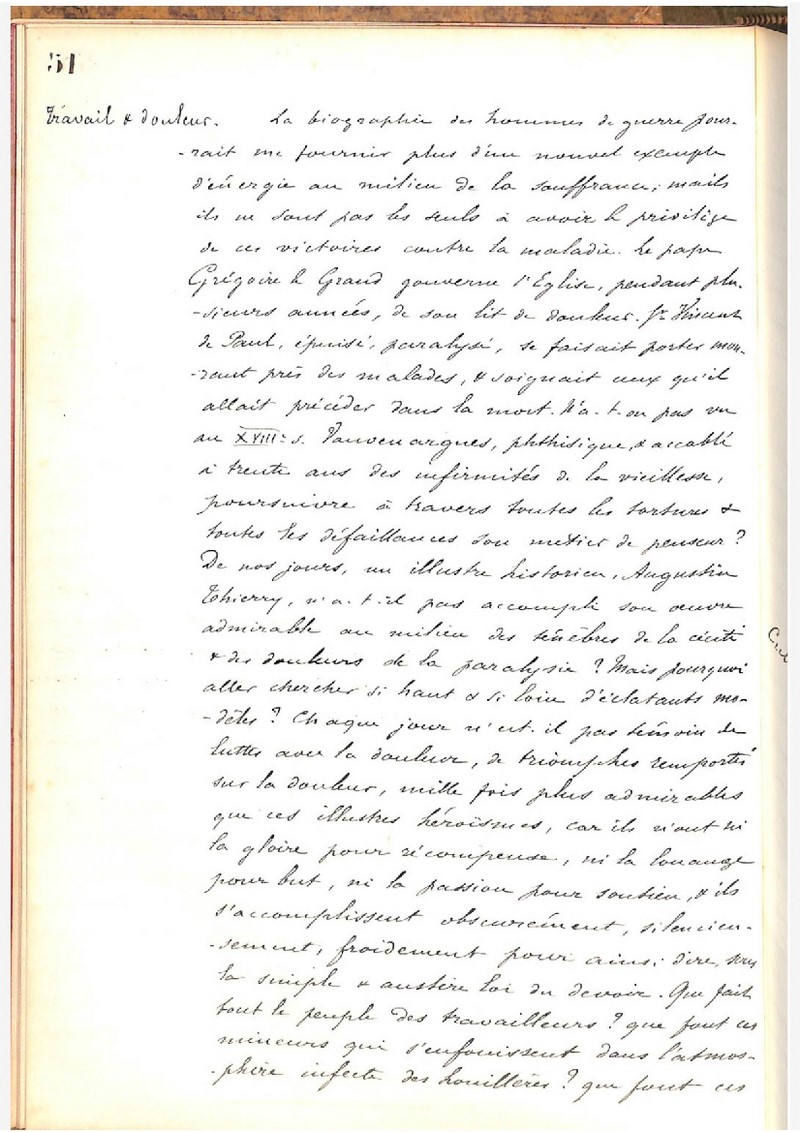 51
Travail & douleur. La biographie des hommes de guerre pour-
-rait me fournir plus d'un nouvel exemple
d'énergie au milieu de la souffrance; mais
ils ne sont pas les seuls à avoir le privilège
de ces victoires contre la maladie. Le pape
Grégoire le Grand gouverne l'Eglise, pendant plu-
-sieurs années, de son lit de douleur. St Vincent
de Paul, épuisé, paralysé, se faisait porter mou-
-rant près des malades, & soignait ceux qu'il
allait précéder dans la mort. N'a-t-on pas vu
au XVIII: s. Vauvenargues, phthisique, & accablé
à trente ans des infirmités de la vieillesse,
poursuivre à travers toutes les tortures &
toutes les défaillances son métier de penseur?
De nos jours, un illustre historien, Augustin
Thierry, n'a-t-il pas accompli son œuvre
admirable au milieu des ténèbres de la cécité
& des douleurs de la paralysie? Mais pourquoi
aller chercher si haut & si loin d'éclatants mo-
-dèles? Chaque jour n'est-il pas témoin de
luttes avec la douleur, de triomphes remportés
sur la douleur, mille fois plus admirables
que ces illustres héroïsmes, car ils n'ont ni
la gloire pour récompense, ni la louange
pour but, ni la passion pour soutien, & ils
s'accomplissent obscurément, silencieu-
-sement, froidement pour ainsi dire, sous
la simple & austère loi du devoir. Que fait
tout le peuple des travailleurs? que font ces
mineurs qui s'enfouissent dans l'atmos-
-phère infecte des houillères? que font ces